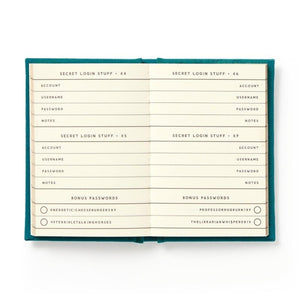 SECRET LOGIN STUFF • 44
ACCOUNT
USERNAME
PASSWORD
NOTES
SECRET LOGIN STUFF • 45
ACCOUNT
USERNAME
PASSWORD
NOTES
BONUS PASSWORDS
SECRET LOGIN STUFF • 46
ACCOUNT
USERNAME
PASSWORD
NOTES
SECRET LOGIN STUFF • 47
ACCOUNT
USERNAME
PASSWORD
NOTES
BONUS PASSWORDS